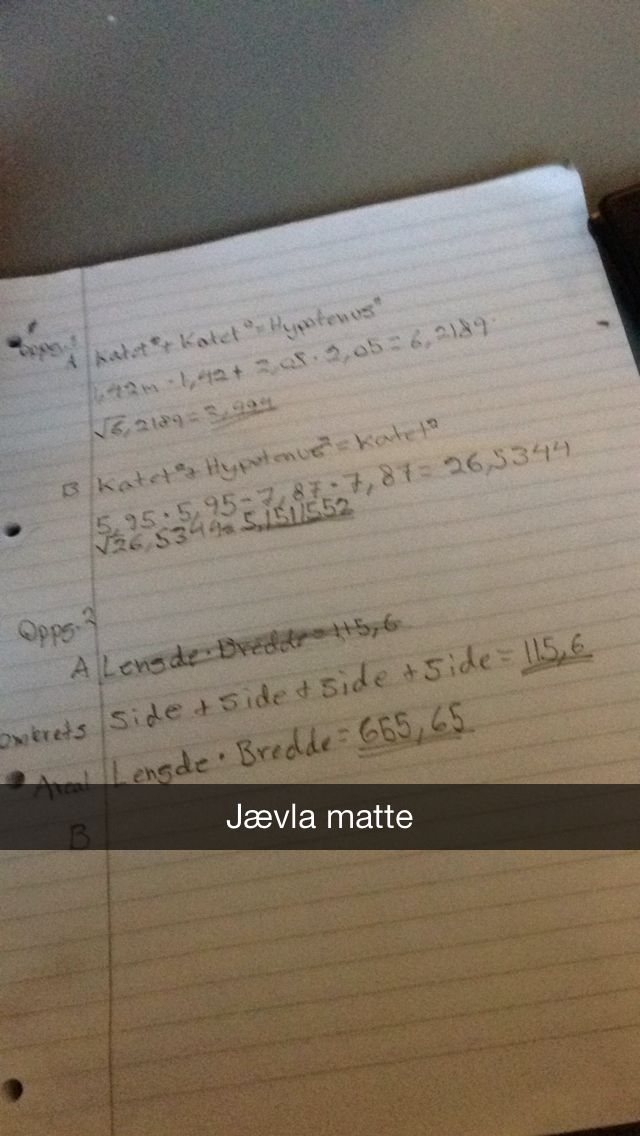 Opps.1
A Katet² + Katet² = Hypotenus²
1,42m · 1,42 + 2,05 · 2,05 = 6,2189
√6,2189 =
B Katet² + Hypotenus² = Katet²
5,95 · 5,95 - 7,87 · 7,87 = 26,5344
√26,5344 = 5,1511552
Opps.2
A Lengde · Bredde = 115,6
omkrets Side + Side + Side + Side = 115,6
Areal Lengde · Bredde = 665,65
Jævla matte
B